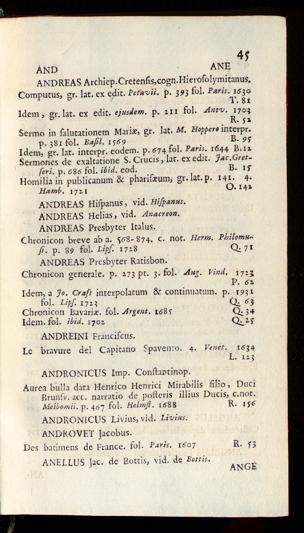 45
AND ANE
ANDREAS Archiep. Cretensis, cogn. Hierosolymitanus.
Computus, gr. lat. ex edit. Petavii. p. 393 fol. Paris. 1630
T. 81
Idem, gr. lat. ex edit. ejusdem. p. 211 fol. Antv. 1703
R. 52
Sermo in salutationem Mariæ, gr. lat. M. Hoppero interpr.
p. 381 fol. Basil. 1569 B. 95
Idem, gr. lat. interpr. eodem. p. 674 fol. Paris. 1644 B. 12
Sermones de exaltatione S. Crucis, lat. ex edit. Jac. Gret-
seri. p. 686 fol. ibid. eod. B. 15
Homilia in publicanum & pharisæum, gr. lat. p. 141. 4.
Hamb. 1721 O. 142
ANDREAS Hispanus, vid. Hispanus.
ANDREAS Helias, vid. Anacreon.
ANDREAS Presbyter Italus.
Chronicon breve ab a. 568-874. c. not. Herm. Philomu-
si. p. 89 fol. Lips. 1728 Q. 71
ANDREAS Presbyter Ratisbon.
Chronicon generale. p. 273 pt. 3. fol. Aug. Vind. 1723
P. 62
Idem, a Jo. Craft interpolatum & continuatum. p. 1931
fol. Lips. 1723 Q. 63
Chronicon Bavariæ. fol. Argent. 1685 Q. 34
Idem. fol. ibid. 1702 Q. 25
ANDREINI Franciscus.
Le bravure del Capitano Spavento. 4. Venet. 1634
L. 123
ANDRONICUS Imp. Constantinop.
Aurea bulla data Henrico Henrici Mirabilis filio, Duci
Brunsv. acc. narratio de posteris illius Ducis, c. not.
Meibomii. p. 467 fol. Helmst. 1688 R. 156
ANDRONICUS Livius, vid. Livius.
ANDROVET Jacobus.
Des batimens de France. fol. Paris. 1607 R. 53
ANELLUS Jac. de Bottis, vid. de Bottis.
ANGE